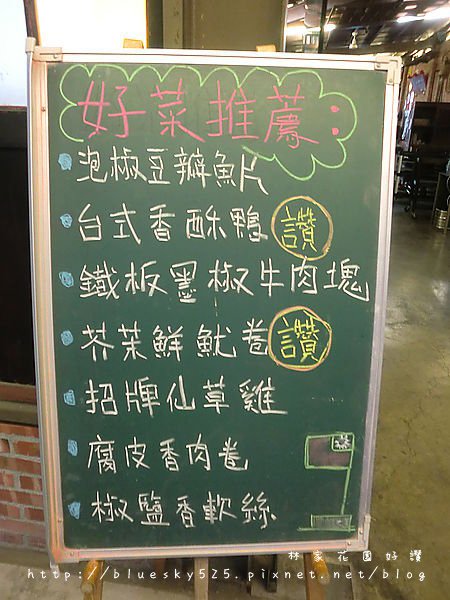 好菜推薦:
泡椒豆瓣魚片
台式香酥鴨 讚
鐵板黑椒牛肉塊
芥茉鮮魷卷 讚
招牌仙草雞
腐皮香肉卷
椒鹽香軟絲
林家花園好讚
http://bluesky525.pixnet.net/blog